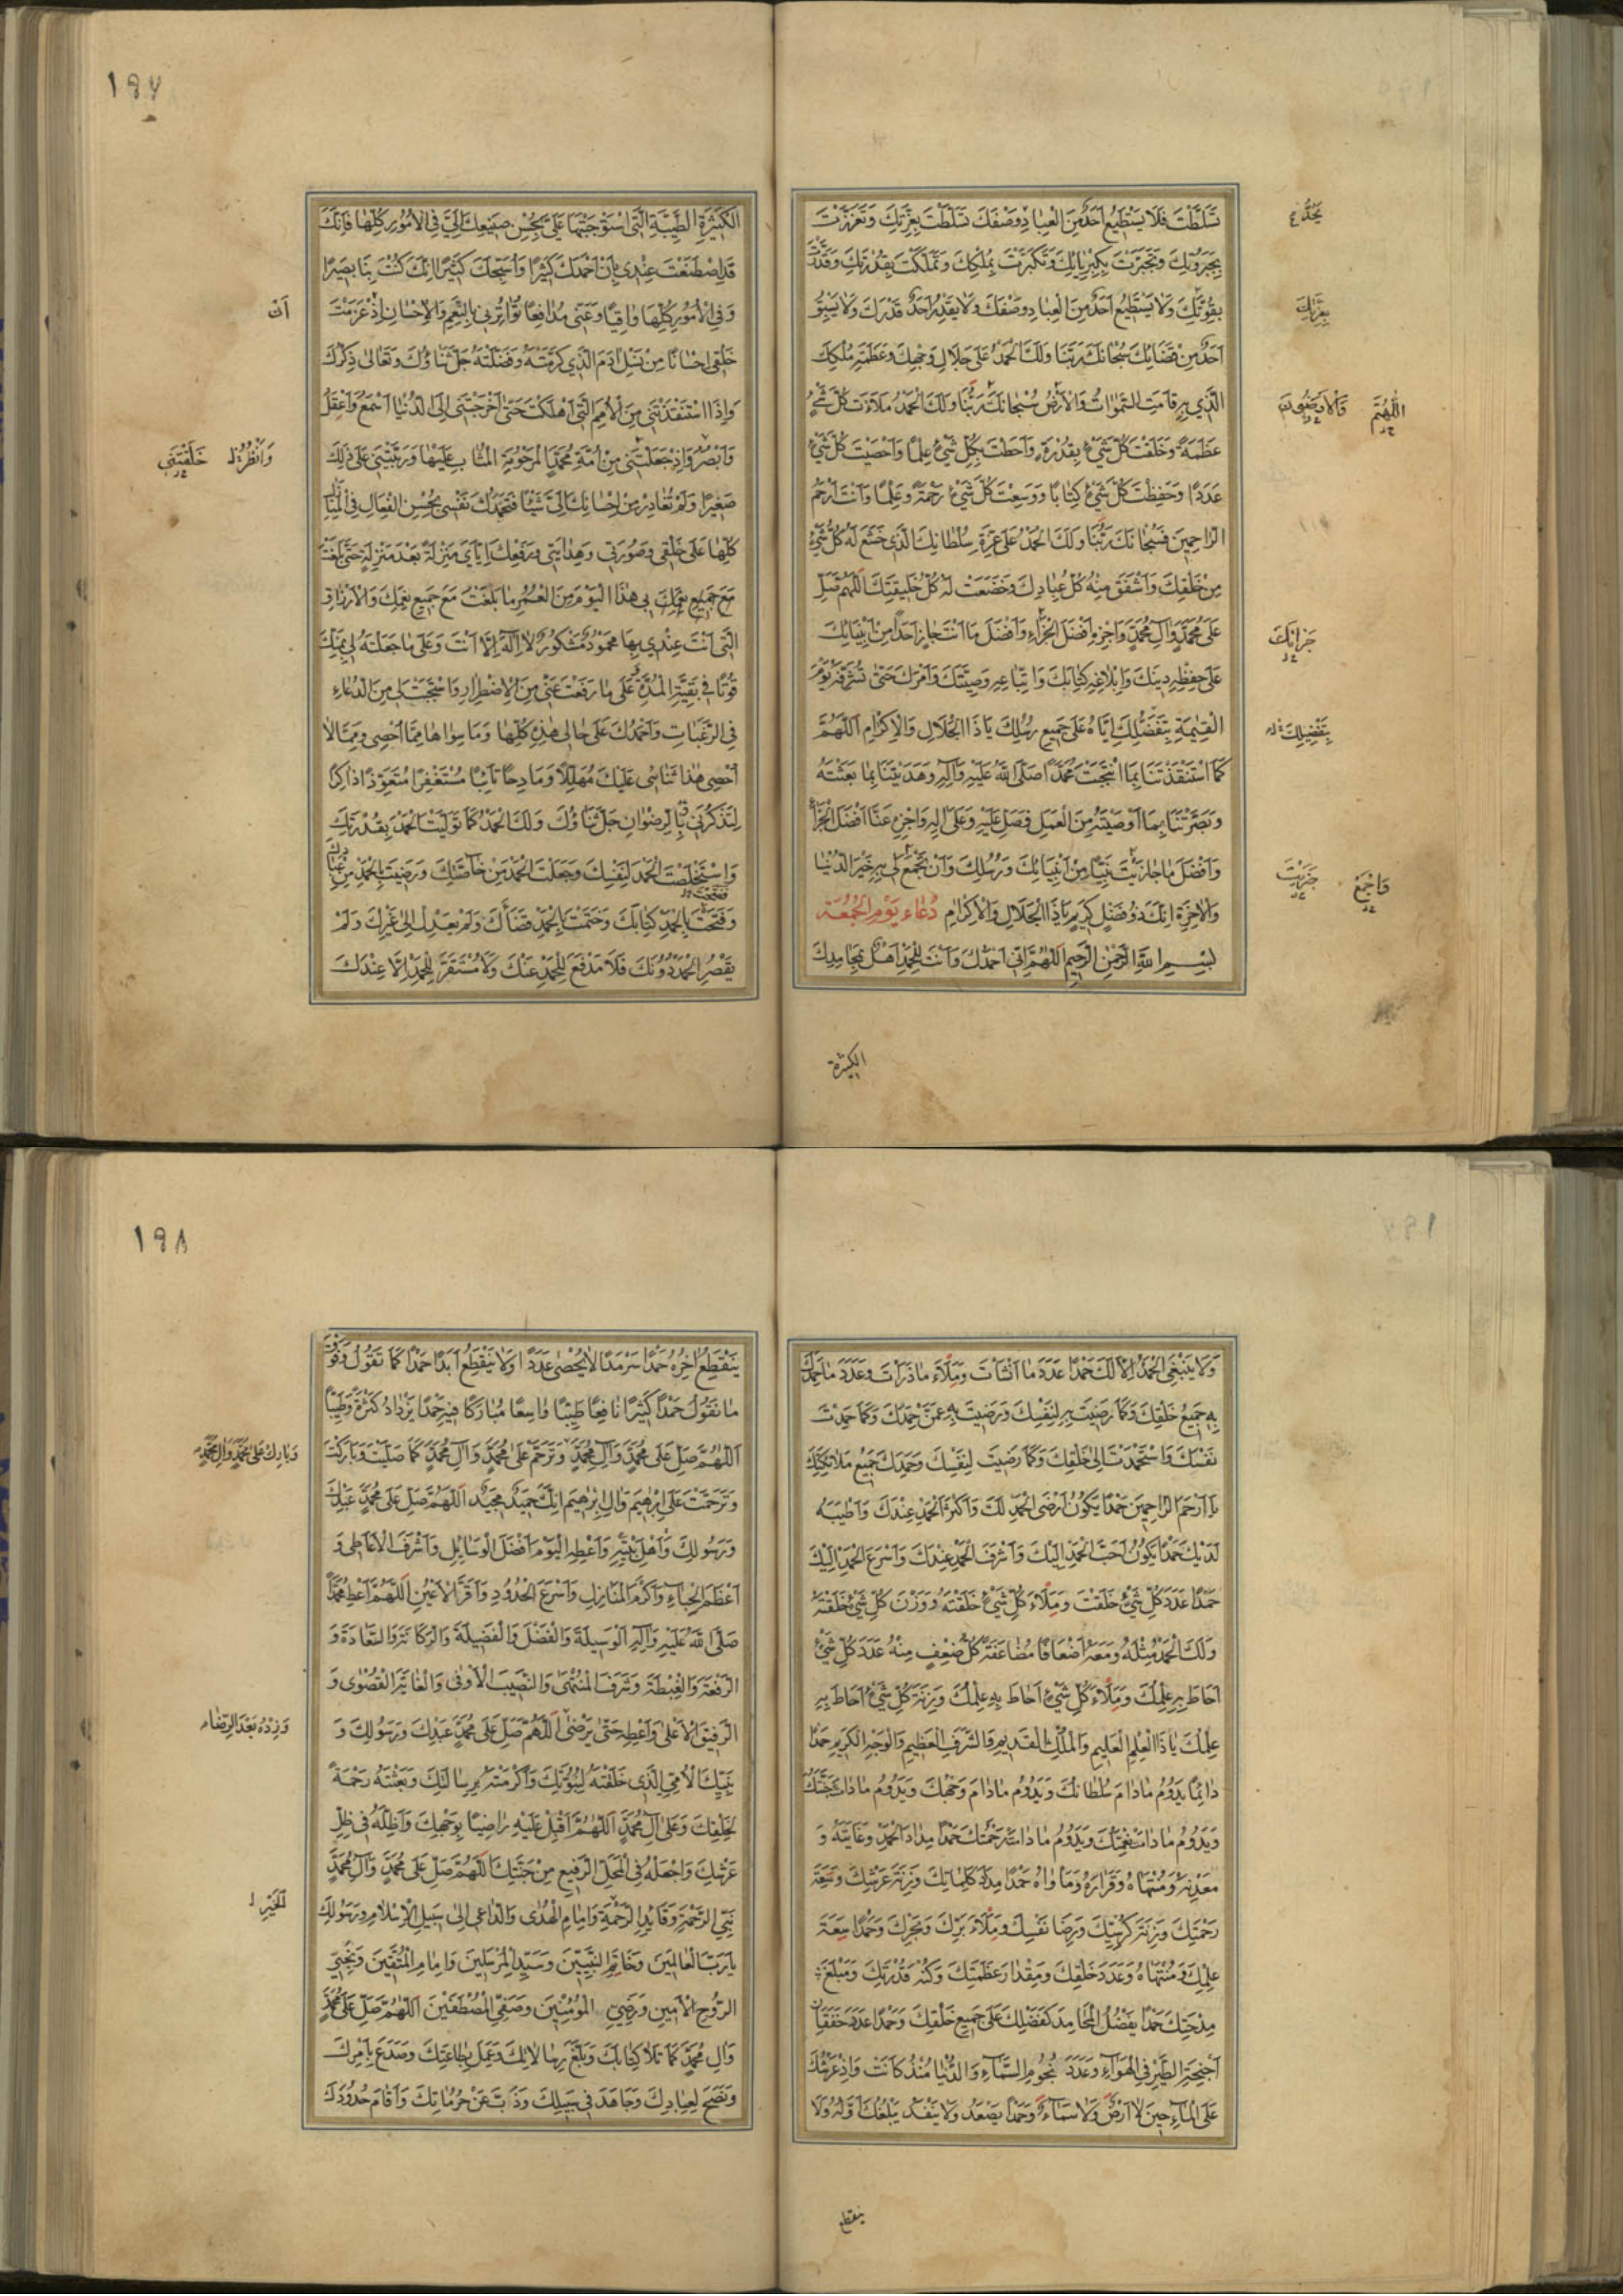 تَسَلَّطْتَ فَلَا يَسْتَطِيعُ أَحَدٌ مِنَ الْعِبَادِ وَصْفَكَ تَسَلَّطْتَ بِعِزَّتِكَ وَتَعَزَّزْتَ
بِجَبَرُوتِكَ وَتَجَبَّرْتَ بِكِبْرِيَائِكَ وَتَكَبَّرْتَ بِمُلْكِكَ وَتَمَلَّكْتَ بِقُدْرَتِكَ وَقَدَرْتَ
بِقُوَّتِكَ وَلَا يَسْتَطِيعُ أَحَدٌ مِنَ الْعِبَادِ وَصْفَكَ وَلَا يَقْدِرُ أَحَدٌ قَدْرَكَ وَلَا يَسْبِقُ
أَحَدٌ مِنْ قَضَائِكَ سُبْحَانَكَ رَبَّنَا وَلَكَ الْحَمْدُ عَلَى جَلَالِ وَجْهِكَ وَعَظَمَةِ مُلْكِكَ
الَّذِي بِهِ قَامَتِ السَّمٰوَاتُ وَالْأَرْضُ سُبْحَانَكَ رَبَّنَا وَلَكَ الْحَمْدُ مَلَأْتَ كُلَّ شَيْءٍ
عَظَمَةً وَخَلَقْتَ كُلَّ شَيْءٍ بِقُدْرَةٍ وَأَحَطْتَ بِكُلِّ شَيْءٍ عِلْمًا وَأَحْصَيْتَ كُلَّ شَيْءٍ
عَدَدًا وَحَفِظْتَ كُلَّ شَيْءٍ كِتَابًا وَوَسِعْتَ كُلَّ شَيْءٍ رَحْمَةً وَعِلْمًا وَأَنْتَ أَرْحَمُ
الرَّاحِمِينَ فَسُبْحَانَكَ رَبَّنَا وَلَكَ الْحَمْدُ عَلَى عِزَّةِ سُلْطَانِكَ الَّذِي خَشَعَ لَهُ كُلُّ شَيْءٍ
مِنْ خَلْقِكَ وَأَشْفَقَ مِنْهُ كُلُّ عِبَادِكَ وَخَضَعَتْ لَهُ كُلُّ خَلِيقَتِكَ اللّٰهُمَّ صَلِّ
عَلَى مُحَمَّدٍ وَآلِ مُحَمَّدٍ وَاجْزِهِ أَفْضَلَ الْجَزَاءِ وَأَفْضَلَ مَا أَنْتَ جَازٍ أَحَدًا مِنْ أَنْبِيَائِكَ
عَلَى حِفْظِهِ دِينَكَ وَإِبْلَاغِهِ كِتَابَكَ وَاتِّبَاعِهِ وَصِيَّتَكَ وَأَمْرَكَ حَتَّى تُشَرِّفَهُ يَوْمَ
الْقِيٰمَةِ بِتَفَضُّلِكَ إِيَّاهُ عَلَى جَمِيعِ رُسُلِكَ يَا ذَا الْجَلَالِ وَالْإِكْرَامِ اللّٰهُمَّ
كَمَا اسْتَنْقَذْتَنَا بِمَا انْتَجَبْتَ مُحَمَّدًا صَلَّى اللّٰهُ عَلَيْهِ وَآلِهِ وَهَدَيْتَنَا بِمَا بَعَثْتَهُ
وَبَصَّرْتَنَا بِمَا أَوْصَيْتَهُ مِنَ الْعَمَلِ فَصَلِّ عَلَيْهِ وَعَلَى آلِهِ وَاجْزِهِ عَنَّا أَفْضَلَ الْجَزَاءِ
وَأَفْضَلَ مَا جَازَيْتَ نَبِيًّا مِنْ أَنْبِيَائِكَ وَرُسُلِكَ وَأَنْ تَجْمَعَ لِي بِهِ خَيْرَ الدُّنْيَا
وَالْآخِرَةِ إِنَّكَ ذُو فَضْلٍ كَرِيمٍ يَا ذَا الْجَلَالِ وَالْإِكْرَامِ دُعَاءُ يَوْمِ الْجُمُعَةِ
بِسْمِ اللّٰهِ الرَّحْمٰنِ الرَّحِيمِ اللّٰهُمَّ إِنِّي أَحْمَدُكَ وَأَنْتَ لِلْحَمْدِ أَهْلٌ بِمَحَامِدِكَ
بِعِزَّتِكَ
اللّٰهُمَّ
جَزَائِكَ
بِتَفْضِيلِكَ
وَاجْمَعْ جَزَيْتَ
الكثيرة
١٩٧
الْكَثِيرَةِ الطَّيِّبَةِ الَّتِي اسْتَوْجَبْتَهَا عَلَيَّ بِحُسْنِ صَنِيعِكَ إِلَيَّ فِي الْأُمُورِ كُلِّهَا فَإِنَّكَ
قَدِ اصْطَنَعْتَ عِنْدِي بِأَنْ أَحْمَدَكَ كَثِيرًا وَأُسَبِّحَكَ كَثِيرًا إِنَّكَ كُنْتَ بِنَا بَصِيرًا
وَفِي الْأُمُورِ كُلِّهَا وَاقِيًا وَعَنِّي مُدَافِعًا تُوَاتِرُنِي بِالنِّعَمِ وَالْإِحْسَانِ إِذْ عَزَمْتَ
خَلْقِي إِحْسَانًا مِنْ نَسْلِ آدَمَ الَّذِي كَرَّمْتَهُ وَفَضَّلْتَهُ جَلَّ ثَنَاؤُكَ وَتَعَالَى ذِكْرُكَ
وَإِذَا اسْتَنْقَذْتَنِي مِنَ الْأُمَمِ الَّتِي أَهْلَكْتَ حَتَّى أَخْرَجْتَنِي إِلَى الدُّنْيَا أَسْمَعُ وَأَعْقِلُ
وَأُبْصِرُ وَإِذْ جَعَلْتَنِي مِنْ أُمَّةِ مُحَمَّدٍ الْمَرْحُومَةِ الْمُثَابِ عَلَيْهَا وَرَبَّيْتَنِي عَلَى ذٰلِكَ
صَغِيرًا وَلَمْ تُغَادِرْ مِنْ إِحْسَانِكَ إِلَيَّ شَيْئًا فَتَحْمَدُكَ نَفْسِي بِحُسْنِ الْفِعَالِ فِي الْمَنَازِلِ
كُلِّهَا عَلَى خَلْقِي وَصُورَتِي وَهِدَايَتِي وَرَفْعِكَ إِيَّايَ مَنْزِلَةً بَعْدَ مَنْزِلَةٍ حَتَّى بَلَغْتَ
بِي هٰذَا الْيَوْمَ مِنَ الْعُمُرِ مَا بَلَغْتَ مَعَ جَمِيعِ نِعَمِكَ وَالْأَرْزَاقِ
الَّتِي أَنْتَ عِنْدِي بِهَا مَحْمُودٌ مَشْكُورٌ لَا إِلٰهَ إِلَّا أَنْتَ وَعَلَى مَا جَعَلْتَهُ لِي بِمَنِّكَ
قُوتًا فِي بَقِيَّةِ الْمُدَّةِ عَلَى مَا رَفَعْتَ عَنِّي مِنَ الْاِضْطِرَارِ وَاسْتَجَبْتَ لِي مِنَ الدُّعَاءِ
فِي الرَّغَبَاتِ وَأَحْمَدُكَ عَلَى حَالِي هٰذِهِ كُلِّهَا وَمَا سِوَاهَا مِمَّا أُحْصِي وَمِمَّا لَا
أُحْصِي هٰذَا ثَنَائِي عَلَيْكَ مُهَلِّلًا وَمَادِحًا تَائِبًا مُسْتَغْفِرًا مُتَعَوِّذًا ذَاكِرًا
لِتَذْكُرَنِي بِالرِّضْوَانِ جَلَّ ثَنَاؤُكَ وَلَكَ الْحَمْدُ كَمَا تَوَلَّيْتَ الْحَمْدَ بِقُدْرَتِكَ
وَاسْتَخْلَصْتَ الْحَمْدَ لِنَفْسِكَ وَجَعَلْتَ الْحَمْدَ مِنْ خَاصَّتِكَ وَرَضِيتَ بِالْحَمْدِ مِنْ عِبَادِكَ
وَفَتَحْتَ بِالْحَمْدِ كِتَابَكَ وَخَتَمْتَ بِالْحَمْدِ قَضَاءَكَ وَلَمْ يَعْدِلْ إِلَى غَيْرِكَ وَلَمْ
يَقْصُرِ الْحَمْدُ دُونَكَ فَلَا مَدْفَعَ لِلْحَمْدِ عَنْكَ وَلَا مُسْتَقَرَّ لِلْحَمْدِ إِلَّا عِنْدَكَ
خَلَقْتَنِي
وَلَا يَنْبَغِي الْحَمْدُ إِلَّا لَكَ حَمْدًا عَدَدَ مَا أَنْشَأْتَ وَمِلْءَ مَا ذَرَأْتَ وَعَدَدَ مَا حَمِدَكَ
بِهِ جَمِيعُ خَلْقِكَ وَكَمَا رَضِيتَ بِهِ لِنَفْسِكَ وَرَضِيتَ بِهِ عَمَّنْ حَمِدَكَ وَكَمَا حَمِدْتَ
نَفْسَكَ وَاسْتَحْمَدْتَ إِلَى خَلْقِكَ وَكَمَا رَضِيتَ لِنَفْسِكَ وَحَمِدَكَ جَمِيعُ مَلَائِكَتِكَ
يَا أَرْحَمَ الرَّاحِمِينَ حَمْدًا يَكُونُ أَرْضَى الْحَمْدِ لَكَ وَأَكْثَرَ الْحَمْدِ عِنْدَكَ وَأَطْيَبَهُ
لَدَيْكَ حَمْدًا يَكُونُ أَحَبَّ الْحَمْدِ إِلَيْكَ وَأَشْرَفَ الْحَمْدِ عِنْدَكَ وَأَسْرَعَ الْحَمْدِ إِلَيْكَ
حَمْدًا عَدَدَ كُلِّ شَيْءٍ خَلَقْتَ وَمِلْءَ كُلِّ شَيْءٍ خَلَقْتَهُ وَوَزْنَ كُلِّ شَيْءٍ خَلَقْتَهُ
وَلَكَ الْحَمْدُ مِثْلَهُ وَمَعَهُ أَضْعَافًا مُضَاعَفَةً كُلُّ ضِعْفٍ مِنْهُ عَدَدَ كُلِّ شَيْءٍ
أَحَاطَ بِهِ عِلْمُكَ وَمِلْءَ كُلِّ شَيْءٍ أَحَاطَ بِهِ عِلْمُكَ وَزِنَةَ كُلِّ شَيْءٍ أَحَاطَ بِهِ
عِلْمُكَ يَا ذَا الْعِلْمِ الْعَلِيمِ وَالْمُلْكِ الْقَدِيمِ وَالشَّرَفِ الْعَظِيمِ وَالْوَجْهِ الْكَرِيمِ حَمْدًا
دَائِمًا يَدُومُ مَا دَامَ سُلْطَانُكَ وَيَدُومُ مَا دَامَ وَجْهُكَ وَيَدُومُ مَا دَامَتْ جَنَّتُكَ
وَيَدُومُ مَا دَامَتْ نِعْمَتُكَ وَيَدُومُ مَا دَامَتْ رَحْمَتُكَ حَمْدًا مِدَادَ الْحَمْدِ وَغَايَتَهُ وَ
مَعْدِنَهُ وَمُنْتَهَاهُ وَقَرَارَهُ وَمَأْوَاهُ حَمْدًا مِدَادَ كَلِمَاتِكَ وَزِنَةَ عَرْشِكَ وَسَعَةَ
رَحْمَتِكَ وَزِنَةَ كُرْسِيِّكَ وَرِضَا نَفْسِكَ وَمِلْءَ بَرِّكَ وَبَحْرِكَ وَحَمْدًا سَعَةَ
عِلْمِكَ وَمُنْتَهَاهُ وَعَدَدَ خَلْقِكَ وَمِقْدَارَ عَظَمَتِكَ وَكُنْهَ قُدْرَتِكَ وَمَبْلَغَ
مِدْحَتِكَ حَمْدًا يَفْضُلُ الْمَحَامِدَ كَفَضْلِكَ عَلَى جَمِيعِ خَلْقِكَ وَحَمْدًا عَدَدَ خَفَقَانِ
أَجْنِحَةِ الطَّيْرِ فِي الْهَوَاءِ وَعَدَدَ نُجُومِ السَّمَاءِ وَالدُّنْيَا مُنْذُ كَانَتْ وَإِذْ عَرْشُكَ
عَلَى الْمَاءِ حِينَ لَا أَرْضٌ وَلَا سَمَاءٌ وَحَمْدًا يَصْعَدُ وَلَا يَنْفَدُ يَبْلُغُكَ أَوَّلُهُ وَلَا
ينقطع
١٩٨
يَنْقَطِعُ آخِرُهُ حَمْدًا سَرْمَدًا لَا يُحْصَى عَدَدًا وَلَا يَنْقَطِعُ أَبَدًا حَمْدًا كَمَا تَقُولُ وَفَوْقَ
مَا نَقُولُ حَمْدًا كَثِيرًا نَافِعًا طَيِّبًا وَاسِعًا مُبَارَكًا فِيهِ حَمْدًا يَزْدَادُ كَثْرَةً وَطِيبًا
اللّٰهُمَّ صَلِّ عَلَى مُحَمَّدٍ وَآلِ مُحَمَّدٍ وَتَرَحَّمْ عَلَى مُحَمَّدٍ وَآلِ مُحَمَّدٍ كَمَا صَلَّيْتَ وَبَارَكْتَ
وَتَرَحَّمْتَ عَلَى إِبْرٰهِيمَ وَآلِ إِبْرٰهِيمَ إِنَّكَ حَمِيدٌ مَجِيدٌ اللّٰهُمَّ صَلِّ عَلَى مُحَمَّدٍ عَبْدِكَ
وَرَسُولِكَ وَأَهْلِ بَيْتِهِ وَأَعْطِهِ الْيَوْمَ أَفْضَلَ الْوَسَائِلِ وَأَشْرَفَ الْأَعَاطِي وَ
أَعْظَمَ الْحِبَاءِ وَأَكْرَمَ الْمَنَازِلِ وَأَسْرَعَ الْحُدُودِ وَأَقَرَّ الْأَعْيُنِ اللّٰهُمَّ أَعْطِ مُحَمَّدًا
صَلَّى اللّٰهُ عَلَيْهِ وَآلِهِ الْوَسِيلَةَ وَالْفَضْلَ وَالْفَضِيلَةَ وَالْمَكَانَةَ وَالسَّعَادَةَ وَ
الرِّفْعَةَ وَالْغِبْطَةَ وَشَرَفَ الْمُنْتَهَى وَالنَّصِيبَ الْأَوْفَى وَالْغَايَةَ الْقُصْوَى وَ
الرَّفِيقَ الْأَعْلَى وَأَعْطِهِ حَتَّى يَرْضَى اللّٰهُمَّ صَلِّ عَلَى مُحَمَّدٍ عَبْدِكَ وَرَسُولِكَ وَ
نَبِيِّكَ الْأُمِّيِّ الَّذِي خَلَقْتَهُ لِنُبُوَّتِكَ وَأَكْرَمْتَهُ بِرِسَالَتِكَ وَبَعَثْتَهُ رَحْمَةً
لِخَلْقِكَ وَعَلَى آلِ مُحَمَّدٍ اللّٰهُمَّ أَقْبِلْ عَلَيْهِ رَاضِيًا بِوَجْهِكَ وَأَظِلَّهُ فِي ظِلِّ
عَرْشِكَ وَاجْعَلْهُ فِي الْمَحَلِّ الرَّفِيعِ مِنْ جَنَّتِكَ اللّٰهُمَّ صَلِّ عَلَى مُحَمَّدٍ وَآلِ مُحَمَّدٍ
نَبِيِّ الرَّحْمَةِ وَقَائِدِ الرَّحْمَةِ وَإِمَامِ الْهُدَى وَالدَّاعِي إِلَى سَبِيلِ الْإِسْلَامِ وَرَسُولِكَ
يَا رَبَّ الْعَالَمِينَ وَخَاتَمِ النَّبِيِّينَ وَسَيِّدِ الْمُرْسَلِينَ وَإِمَامِ الْمُتَّقِينَ وَنَجِيِّ
الرُّوحِ الْأَمِينِ وَرَضِيِّ الْمُؤْمِنِينَ وَصَفِيِّ الْمُصْطَفَيْنَ اللّٰهُمَّ صَلِّ عَلَى مُحَمَّدٍ
وَآلِ مُحَمَّدٍ كَمَا تَلَا كِتَابَكَ وَبَلَّغَ رِسَالَاتِكَ وَعَمِلَ بِطَاعَتِكَ وَصَدَعَ بِأَمْرِكَ
وَنَصَحَ لِعِبَادِكَ وَجَاهَدَ فِي سَبِيلِكَ وَذَبَّ عَنْ حُرُمَاتِكَ وَأَقَامَ حُدُودَكَ
وَبَارِكْ عَلَى مُحَمَّدٍ وَآلِ مُحَمَّدٍ
وَزِدْهُ بَعْدَ الرِّضَاءِ
الْخَيْرِ